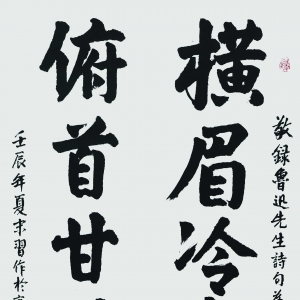 敬録魯迅先生詩句
横眉冷
俯首甘
壬辰年夏末習作於